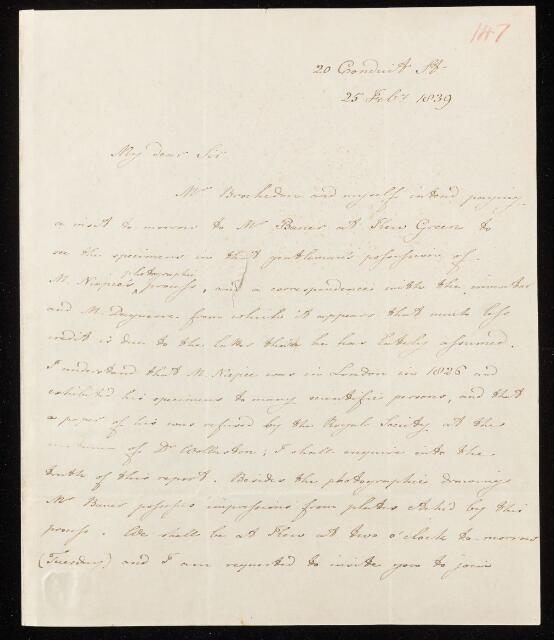 147
20 Conduit St
25 Feby 1839
My dear Sir
Mr Brockedon and myself intend paying
a visit to morrow to Mr Bauer at Kew Green to
see the specimens in that gentleman's possession of
photographic
M. Niepce's process, and a correspondence with the inventor
and M. Daguerre from which it appears that much less
credit is due to the latter than he has lately assumed.
I understand that M. Niepce was in London in 1826 and
exhibited his specimens to many scientific persons, and that
a paper of his was refused by the Royal Society at the
of Dr Wollaston; I shall enquire into the
truth of this report. Besides the photographic drawings
Mr Bauer possesses impressions from plates etched by this
process. We shall be at Kew at two o'clock to-morrow
(Tuesday) and I am requested to invite you to join